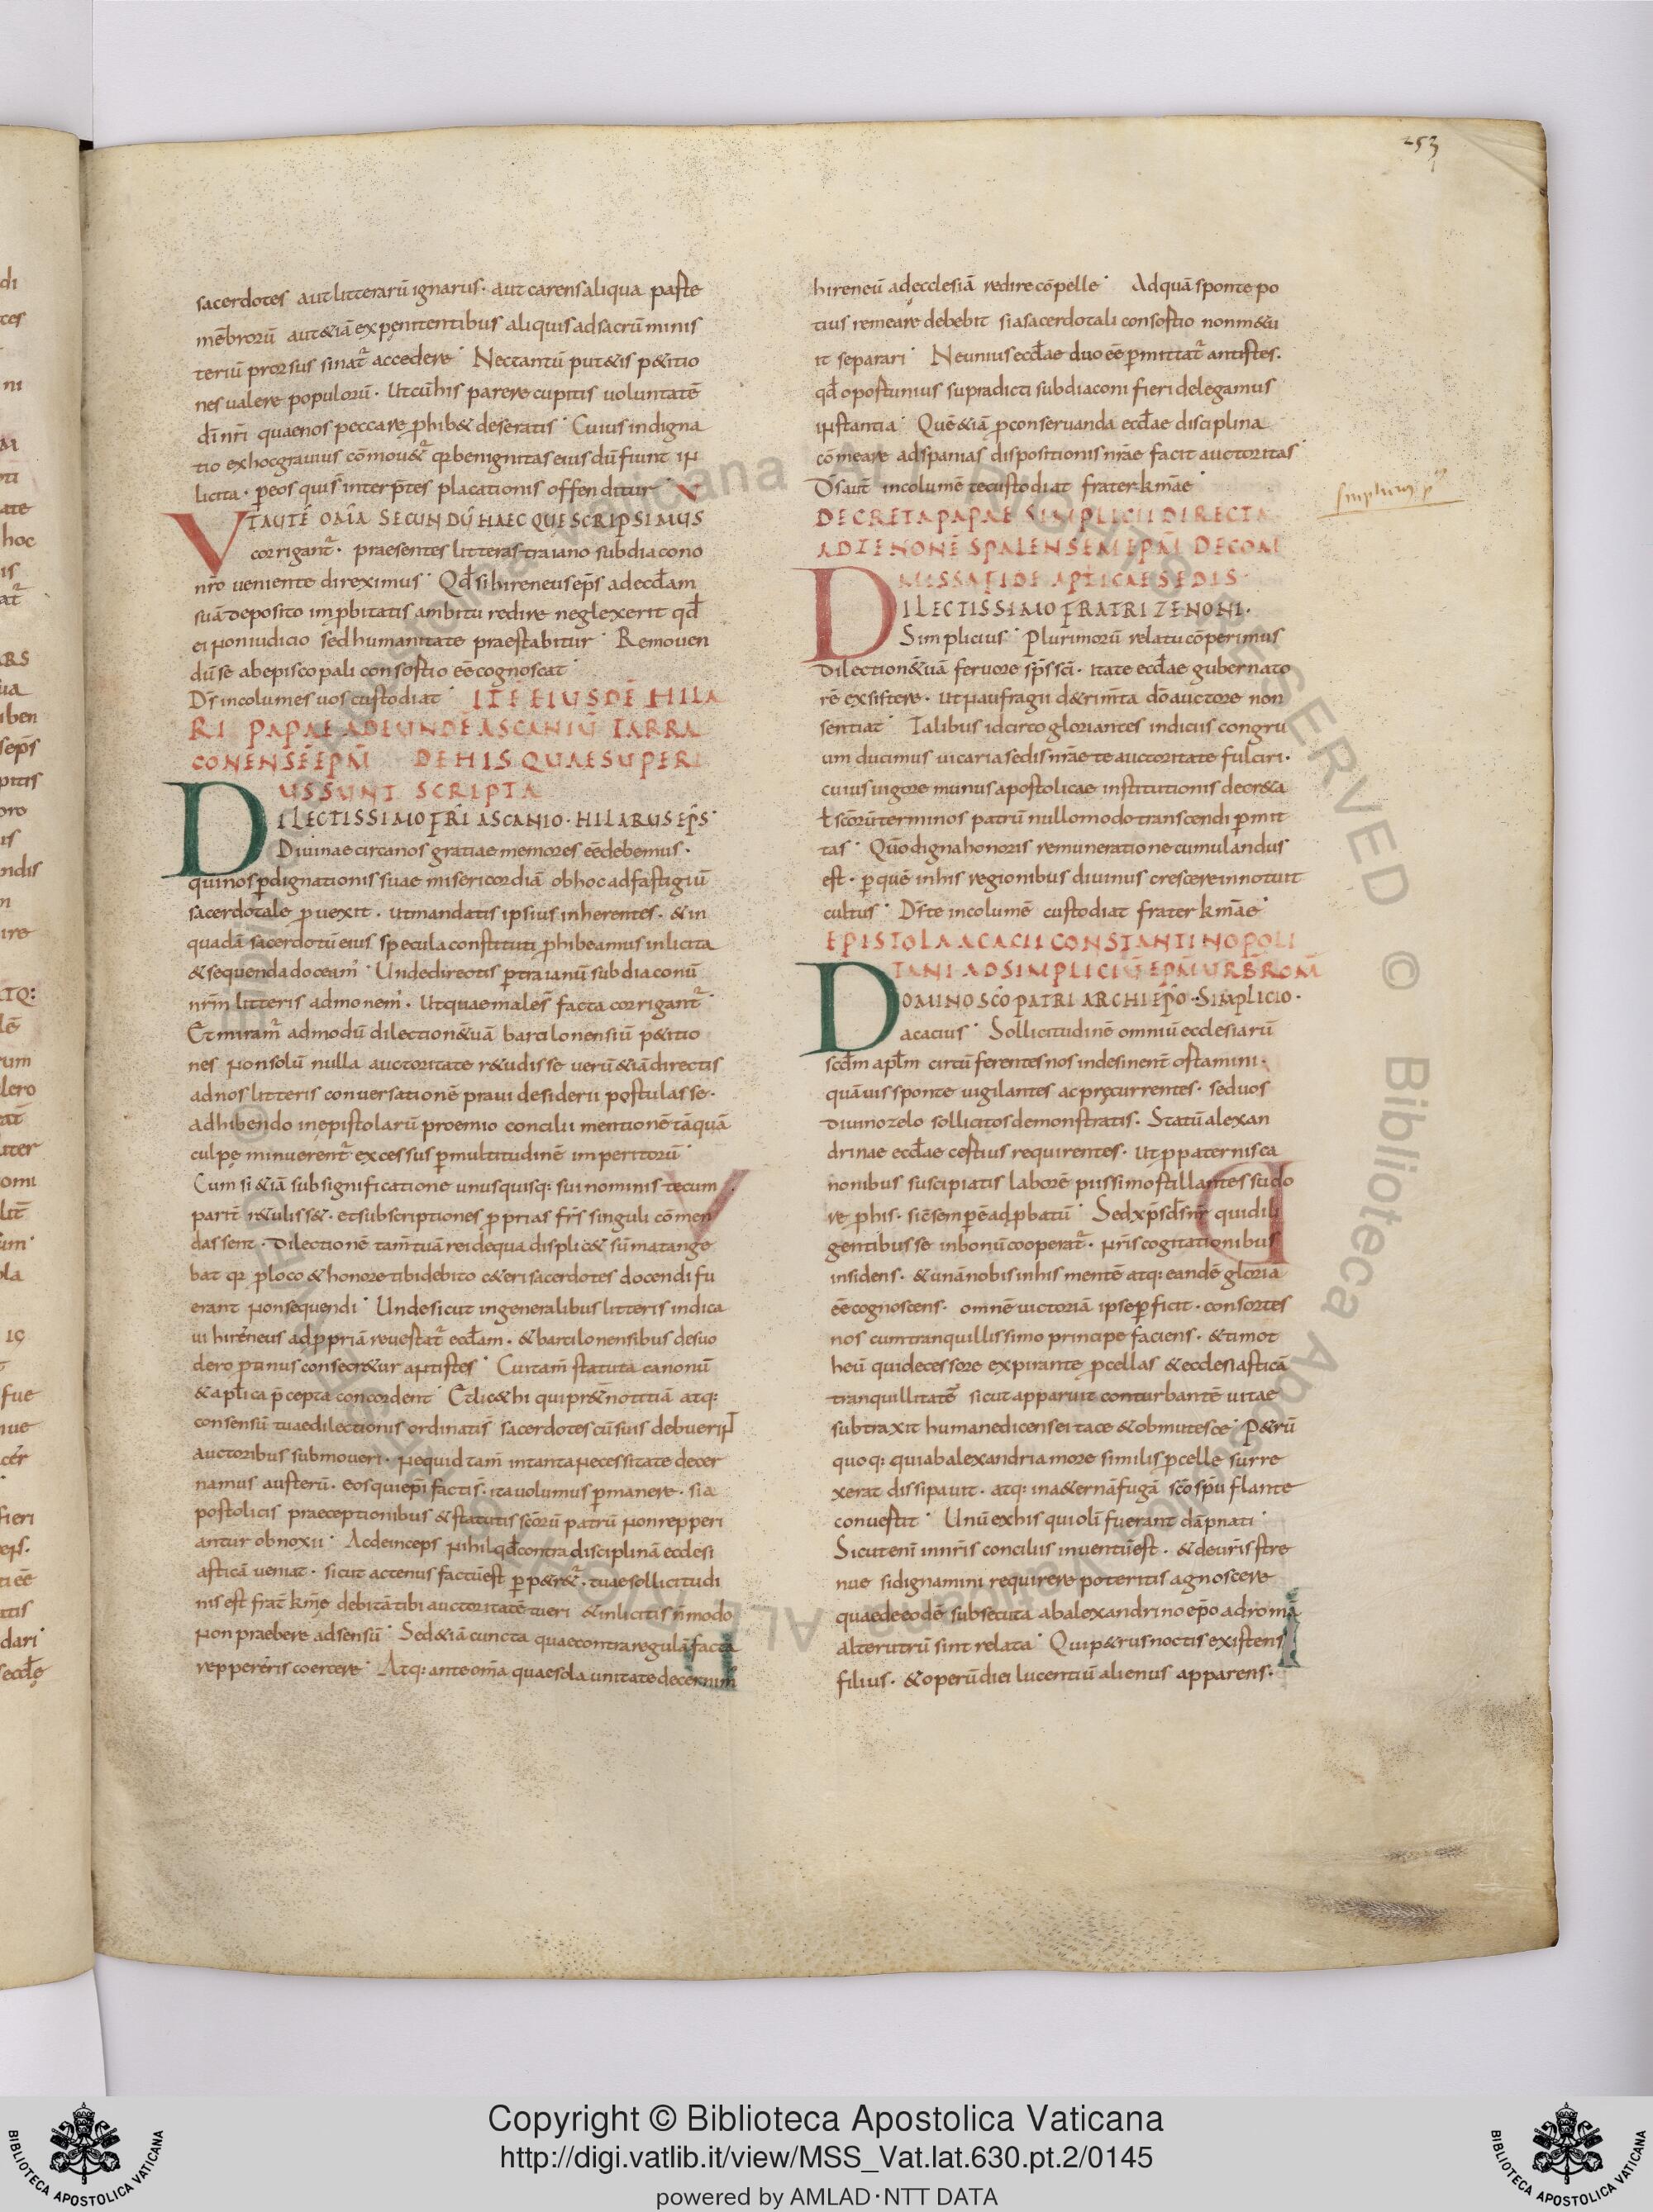 253
sacerdotes aut litterarū ignarus · aut carens aliqua parte
mēbrorū aut &iā ex pęnitentibus aliquis ad sacrū minis
teriū prorsus sinat̄ accedere · Nec tantū put&is p&itio
nes valere populorū · Ut cū his parere cupitis uoluntatē
dī nrī quae nos peccare phib& deseratis · Cuius indigna
tio ex hoc grauius cōmou&̄ qr benignitas eius dū fiunt in
licita · p eos quis interp̄tes placationis offenditur · V
UT AUTĒ OM̄A SECUNDŪ HAEC QUE SCRIPSIMUS
corrigant̄ · praesentes litteras traiano subdiacono
nro ueniente direximus · Qd̄ si hireneus ep̄s ad eccl̄am
suā deposito impbitatis ambitu redire neglexerit qd̄
ei non iudicio sed humanitate praestabitur · Remouen
dū se ab episcopali consortio eē cognoscat ·
Ds̄ incolumes uos custodiat · ITĒ EIUSDĒ HILA
RI PAPAE AD EUNDE ASCANIŪ TARRA
CONENSĒ EPM̄ DE HIS QUAE SUPERI
US SUNT SCRIPTA
DILECTISSIMO FRĪ ASCANIO · HILARUS EPS̄ ·
Diuinae circa nos gratiae memores eē debemus ·
qui nos p dignationis suae misericordiā ob hoc ad fastigiū
sacerdotale puexit · ut mandatis ipsius inherentes · & in
quadā sacerdotū eius specula constituti phibeamus inlicita
& sequenda doceam̄ · Unde directis p traianū subdiaconū
nrm̄ litteris admonem̄ · Ut quae male s̄ facta corrigant̄ ·
Et miram̄ admodū dilection& uā barcilonensiū p&itio
nes non solū nulla auctoritate r&udisse uerū &iā directis
ad nos litteris conuersationē praui desiderii postulasse ·
adhibendo in epistolarū proemio concilii mentionē tāquā
culpę minuerent̄ excessus p multitudinē imperitorū ·
Cum si &iā sub significatione unusquisq: sui nominis tecum
parit̄ r&uliss& · et subscriptiones pprias frs̄ singuli cōmen
dassent · Dilectionē tam̄ tuā rei de qua displic& sūma tange
bat qr p loco & honore tibi debito c&eri sacerdotes docendi fu
erant non sequendi · Unde sicut in generalibus litteris indica
ui hireneus ad ppriā reuertat̄ eccl̄am · & barcilonensibus de suo
clero ptinus consecr&ur antistes · Cui tam̄ statuta canonū
& aplica p̄cepta concordent · Et lic& hi qui pr&̄ notitiā atq:
consensū tuae dilectionis ordinati s̄ sacerdotes cū suis debuerint
auctoribus submoueri · ne quid tam̄ in tanta necessitate decer
namus austerū · eos qui epī facti s̄ · ita uolumus pmanere · si a
postolicis praeceptionibus & statutis scōrū patrū non repperi
antur obnoxii · Ac deinceps nihil qd̄ contra disciplinā ecclesi
asticā ueniat · sicut actenus factū est pp&r&̄ · tuae sollicitudi
nis est frat̄ kmę debitā tibi auctoritatē tueri & inlicitis n̄ modo
non praebere adsensū · Sed &iā cuncta quae contra regulā facta
reppereris coercere · Atq: ante om̄a quae sola unitate decernim̄
hireneū ad ecclesiā redire cōpelle · Ad quā sponte po
tius remeare debebit si a sacerdotali consortio non m&u
it separari · Ne unius eccl̄ae duo eē pmittat̄ antistes ·
qd̄ oportunius supradicti subdiaconi fieri delegamus
instantia · Quē &iā p conseruanda eccl̄ae disciplina
cōmeare ad spanias dispositionis nrāe facit auctoritas ·
Ds̄ aut̄ incolumē te custodiat frater kmāe ·
DECRETA PAPAE SIMPLICII DIRECTA
AD ZENONĒ SPALENSEM EPM̄ DE COM
MISSA FIDE APTICAE SEDIS ·
DILECTISSIMO FRATRI ZENONI ·
Simplicius · Plurimorū relatu cōperimus
dilection& uā feruore sps̄ scī · ita te eccl̄ae gubernato
rē exsistere · ut naufragii d&rim̄ta dō auctore non
sentiat · Talibus idcirco gloriantes indiciis congru
um ducimus uicaria sedis nrāe te auctoritate fulciri ·
cuius uigore munus apostolicae institutionis decr&a
ł scōrū terminos patrū nullo modo transcendi pmit
tas · Qūo digna honoris remuneratione cumulandus
est · p quē in his regionibus diuinus crescere innotuit
cultus · Ds̄ te incolumē custodiat frater kmāe ·
EPISTOLA ACACII CONSTANTINOPOLI
TANI AD SIMPLICIŪ EPM̄ URB̄ ROM̄
DOMINO SCŌ PATRI ARCHIEPŌ · SIMPLICIO ·
acacius · Sollicitudinē omniū ecclesiarū
scd̄m apl̄m circū ferentes nos indesinent̄ ortamini ·
quāuis sponte uigilantes ac pręcurrentes · sed uos
diuino zelo sollicitos demonstratis · Statū alexan
drinae eccl̄ae certius requirentes · ut p paternis ca
nonibus suscipiatis laborē piissimo stillantes sudo
re p his · sic̄ semp ē adpbatū · Sed xps̄ ds̄ nr̄ qui dili
gentibus se in bonū cooperat̄ · nrīs cogitationibus
insidens · & unā nobis in his mentē atq: eandē gloriā
eē cognoscens · omnē uictoriā ipse pficit · consortes
nos cum tranquillissimo principe faciens · & timot
heū qui decessore expirante pcellas & ecclesiasticā
tranquillitatē sicut apparuit conturbantē uitae
subtraxit humane dicens ei tace & obmutesce · P&rū
quoq: qui ab alexandria more similis pcelle surre
xerat dissipauit · atq: in a&ernā fugā scō spū flante
conuertit · Unū ex his qui olī fuerant dāpnati ·
Sicut enī in nrīs conciliis inuentū est · & de urīs stre
nue si dignamini requirere poteritis agnoscere
quae de eodē subsecuta ab alexandrino epō ad romā
alterutrū sint relata · Qui p&rus noctis existens
filius · & operū diei lucentiū alienus apparens ·
Copyright © Biblioteca Apostolica Vaticana
http://digi.vatlib.it/view/MSS_Vat.lat.630.pt.2/0145
powered by AMLAD·NTT DATA
BIBLIOTECA APOSTOLICA VATICANA
BIBLIOTECA APOSTOLICA VATICANA